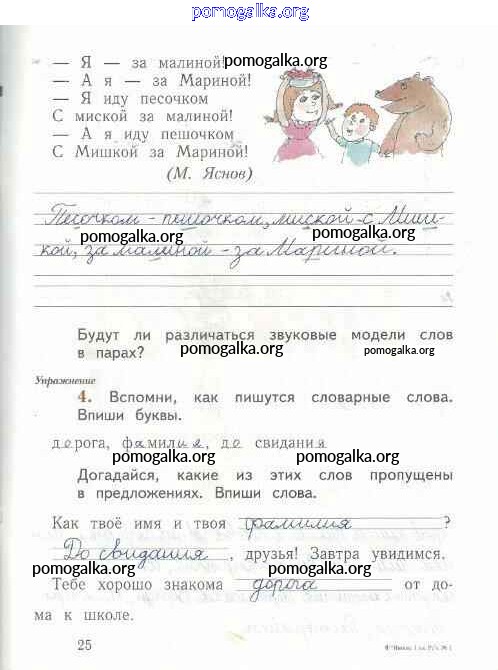 pomogalka.org
— Я — за малиной! pomogalka.org
— А я — за Мариной!
— Я иду песочком pomogalka.org
С миской за малиной!
— А я иду пешочком
С Мишкой за Мариной!
(М. Яснов)
Песочком - пешочком, миской - с Миш-
pomogalka.org pomogalka.org
кой, за малиной - за Мариной.
pomogalka.org
Будут ли различаться звуковые модели слов
в парах? pomogalka.org pomogalka.org
Упражнение
4. Вспомни, как пишутся словарные слова.
Впиши буквы. pomogalka.org
дорога, фамилия, до свидания
pomogalka.org
Догадайся, какие из этих слов пропущены
в предложениях. Впиши слова.
pomogalka.org
Как твоё имя и твоя фамилия ?
До свидания, друзья! Завтра увидимся.
pomogalka.org pomogalka.org
Тебе хорошо знакома дорога от до-
ма к школе.
25 pomogalka.org